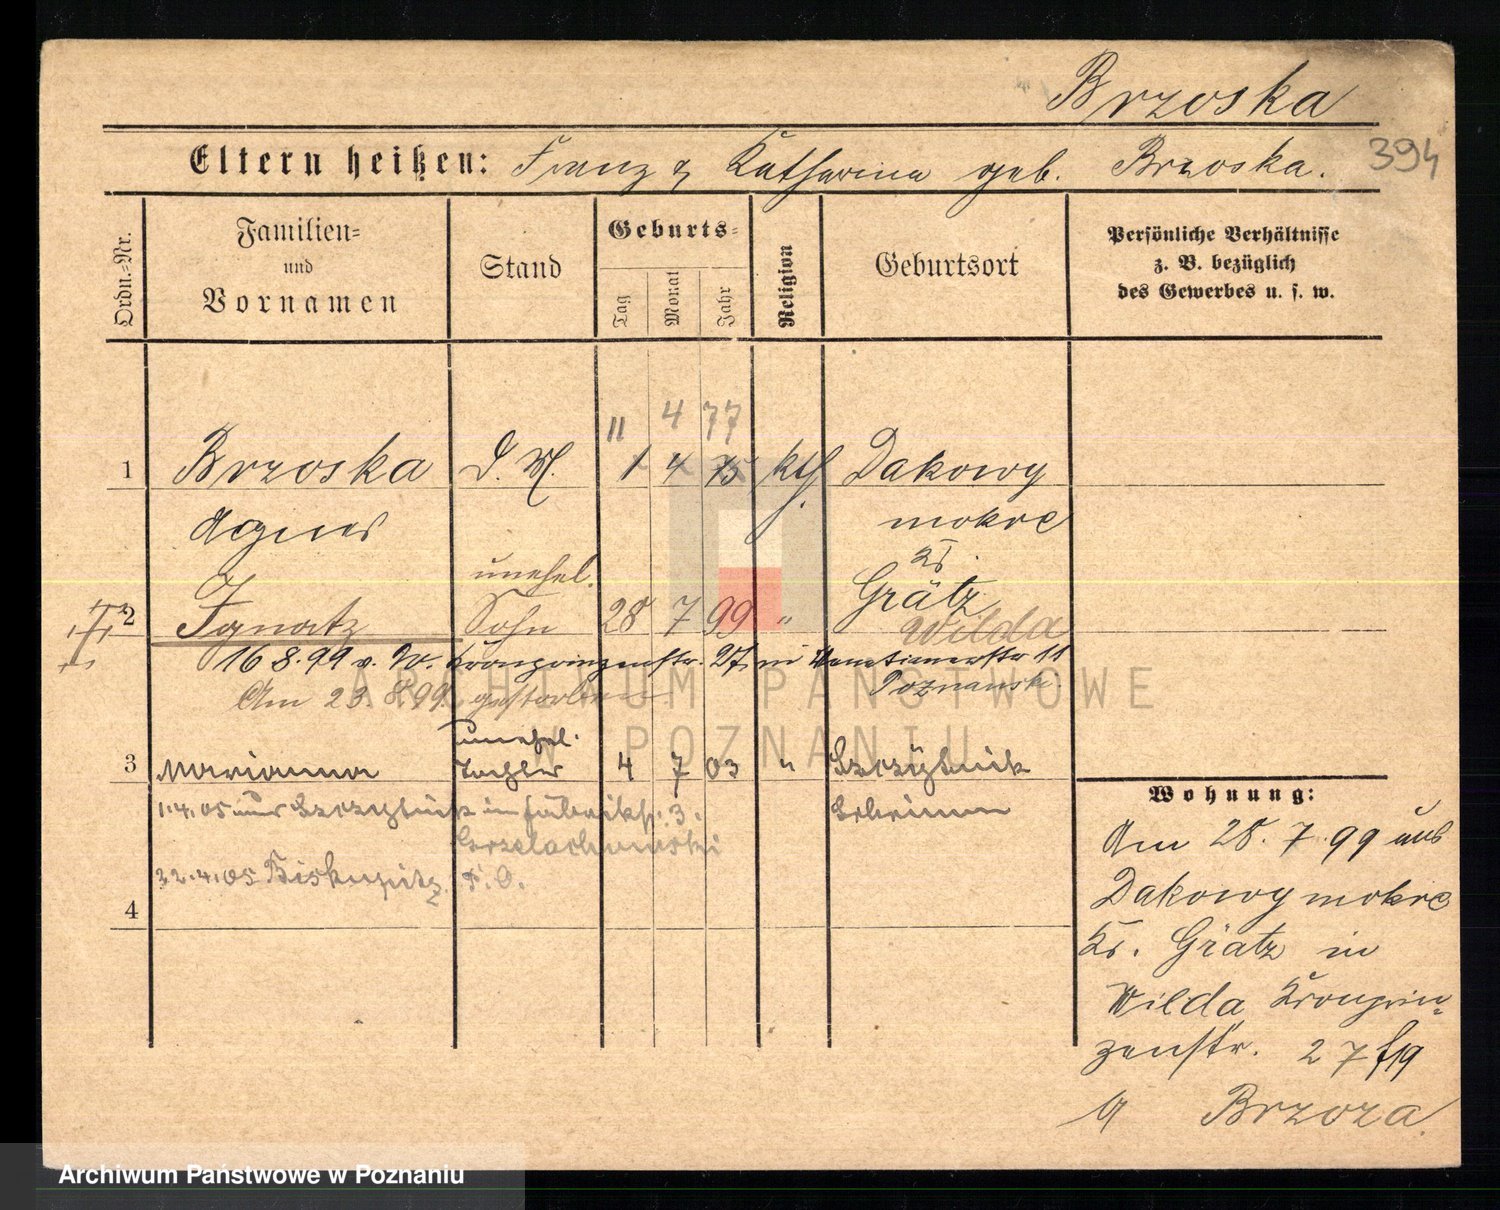 Brzoska
394
Eltern heißen: Franz & Katharina geb. Brzoska.
Ordn.-Nr.
Familien-
und
Vornamen
Stand
Geburts-
Tag
Monat
Jahr
Religion
Geburtsort
Persönliche Verhältnisse
z. B. bezüglich
des Gewerbes u. s. w.
11 4 77
1 Brzoska D. M. 1 4 75 kth. Dakowy
Agnes mokre
Kr.
unehel. Grätz
2 Ignatz Sohn 28 7 99 " Wilda
16 8.99 v. W. Kronprinzenstr. 27 in Venetianerstr 11
Am 23.8.99 gestorben Poznansk.
unehel.
3 Marianna Tochter 4 7 03 "
1.4.05 aus in Fabrikstr. 3. Schrimm
22.4.05 Biskupitz F. O.
4
Wohnung:
Am 28.7.99 aus
Dakowy mokre
Kr. Grätz in
Wilda Kronprin-
zenstr. 27
Brzoza
ARCHIWUM PAŃSTWOWE
W POZNANIU
Archiwum Państwowe w Poznaniu